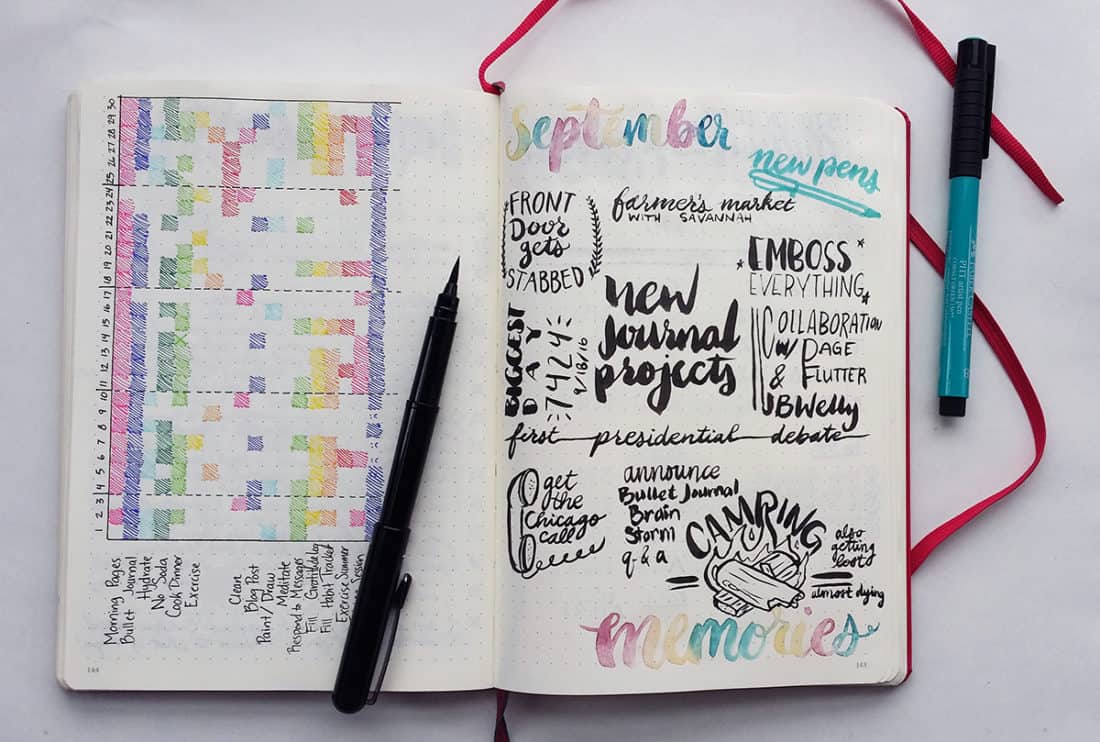 1 2 3 4 5 6 7 8 9 10 11 12 13 14 15 16 17 18 19 20 21 22 23 24 25 26 27 28 29 30
Morning Pages
Bullet Journal
Hydrate
No Soda
Cook Dinner
Exercise
Clean
Blog Post
Paint/Draw
Meditate
Respond to Messages
Fill Gratitude Log
Fill Habit Tracker
Exercise Summer
Session
144
September
new pens
FRONT
Door
gets
STABBED
farmer's market
WITH SAVANNAH
EMBOSS
EVERYTHING
new
Journal
projects
BIGGEST
DAY
7424
9/18/16
COLLABORATION
W/ PAGE
& FLUTTER
& BWelly
first presidential debate
get
the
Chicago
call
announce
Bullet Journal
Brain
Storm
q-&a
CAMPING
also
getting
lost
almost dying
memories
145
PITT artist pen
B